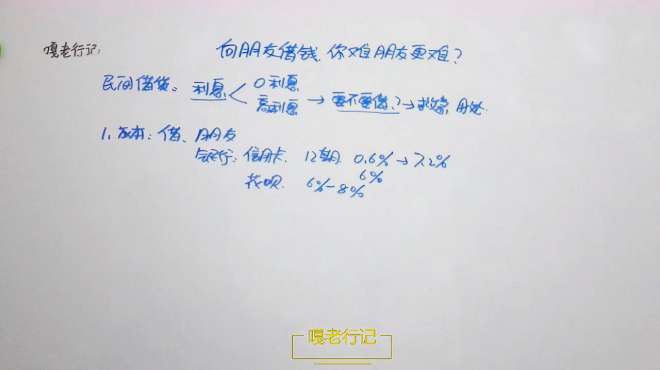 嘎老行记:
向朋友借钱,你难朋友更难?
民间借贷: 利息 < 0利息
高利息 → 要不要借? → 救急, 用处
1. 成本: 借、朋友
银行: 信用卡. 12期 0.6% → 7.2%
6%
找呗. 6%-8%
嘎老行记